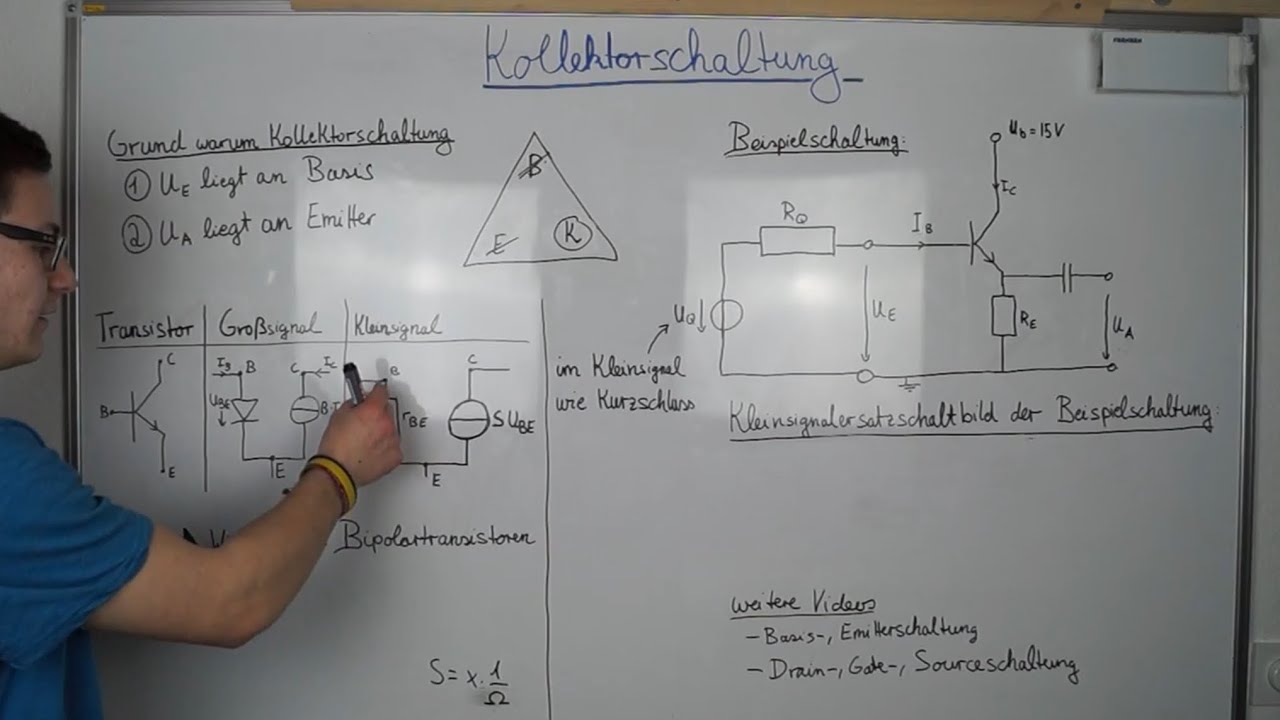 Kollektorschaltung
Grund warum Kollektorschaltung
① U_E liegt an Basis
② U_A liegt an Emitter
B
E
K
Transistor
Großsignal
Kleinsignal
C
B
E
I_B
B
U_BE
C
I_C
E
B
r_BE
C
S U_BE
E
Bipolartransistoren
S = x · 1/Ω
Beispielschaltung:
U_b = 15V
I_C
R_Q
I_B
U_Q
U_E
R_E
U_A
im Kleinsignal
wie Kurzschluss
Kleinsignalersatzschaltbild der Beispielschaltung:
weitere Videos
- Basis-, Emitterschaltung
- Drain-, Gate-, Sourceschaltung